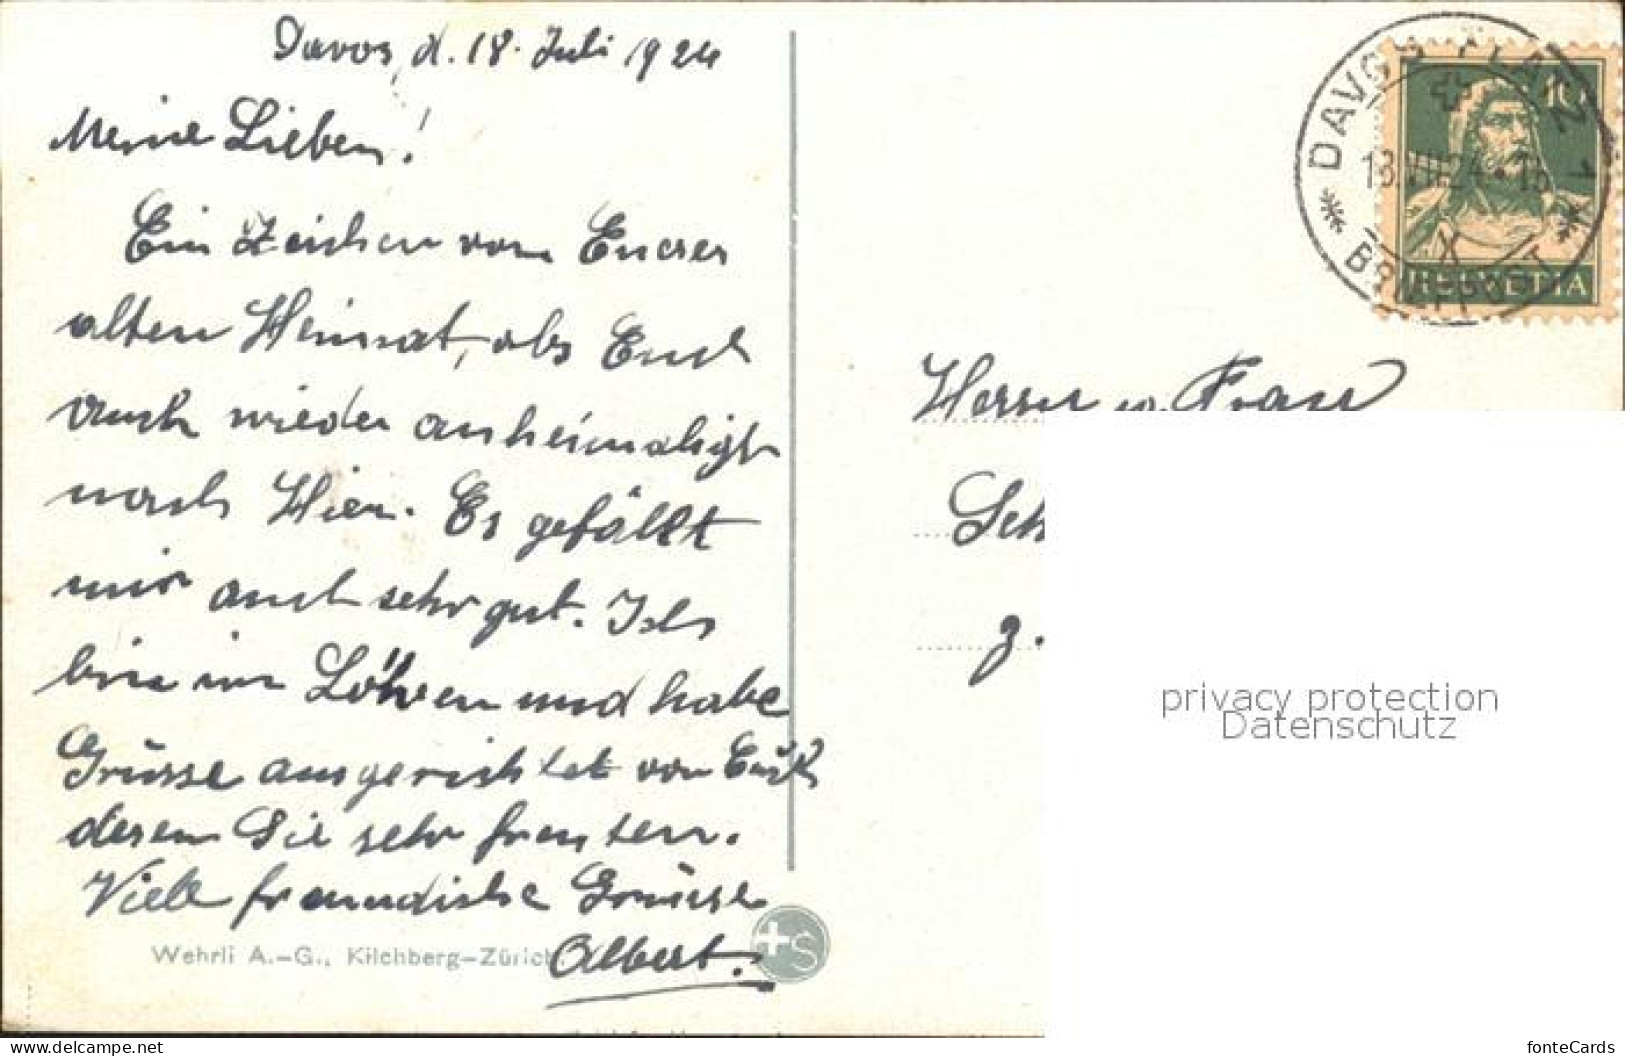 Davos, d. 18. Juli 1924
Meine Lieben!
Ein Zeichen von Euerer
alten Heimat, ob's Euch
auch wieder anheimaligt
nach Hier. Es gefällt
mir auch sehr gut. Ich
bin im Löwen und habe
Grüsse ausgerichtet von Euch
deren Sie sehr freuten.
Viele freundliche Grüsse
Albert.
Wehrli A.-G., Kilchberg-Zürich
+S
DAVOS PLATZ 1
18.VII.24 • 18
* BRIEFPOST *
10
HELVETIA
Herrn u. Frau
Sch
z.
privacy protection
Datenschutz
https://www.delcampe.net/
fonteCards